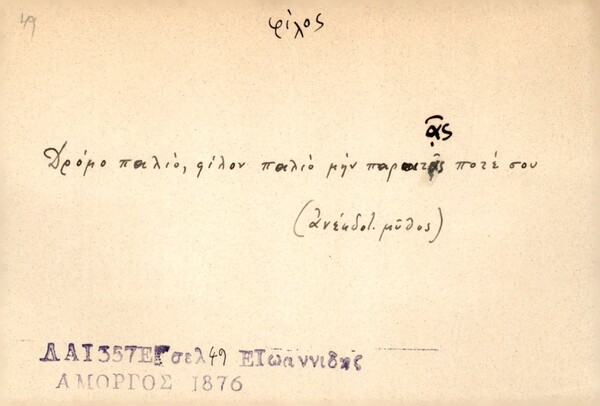 49
φίλος
ᾷς
Δρόμο παλιό, φίλον παλιό μήν παρατᾷς ποτέ σου
(ἀνέκδοτ. μῦθος)
ΛΑΙ357ΕΓ σελ49 ΕΙωαννιδης
ΑΜΟΡΓΟΣ 1876